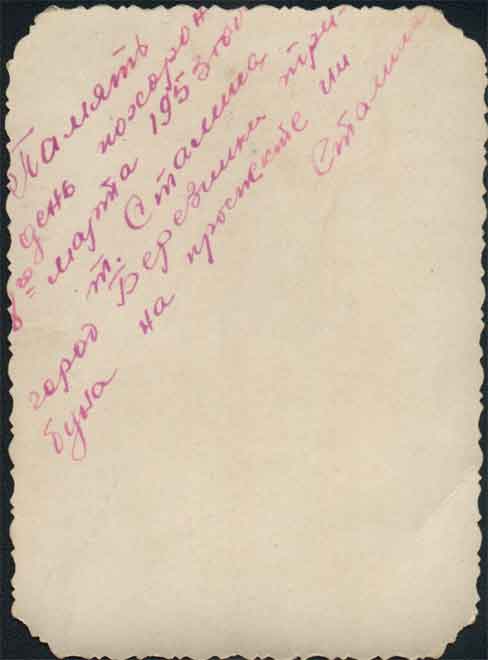 Память
день похорон
8го марта 1953 го
т. Сталина
город Березники три-
буна на проспекте им
Сталина